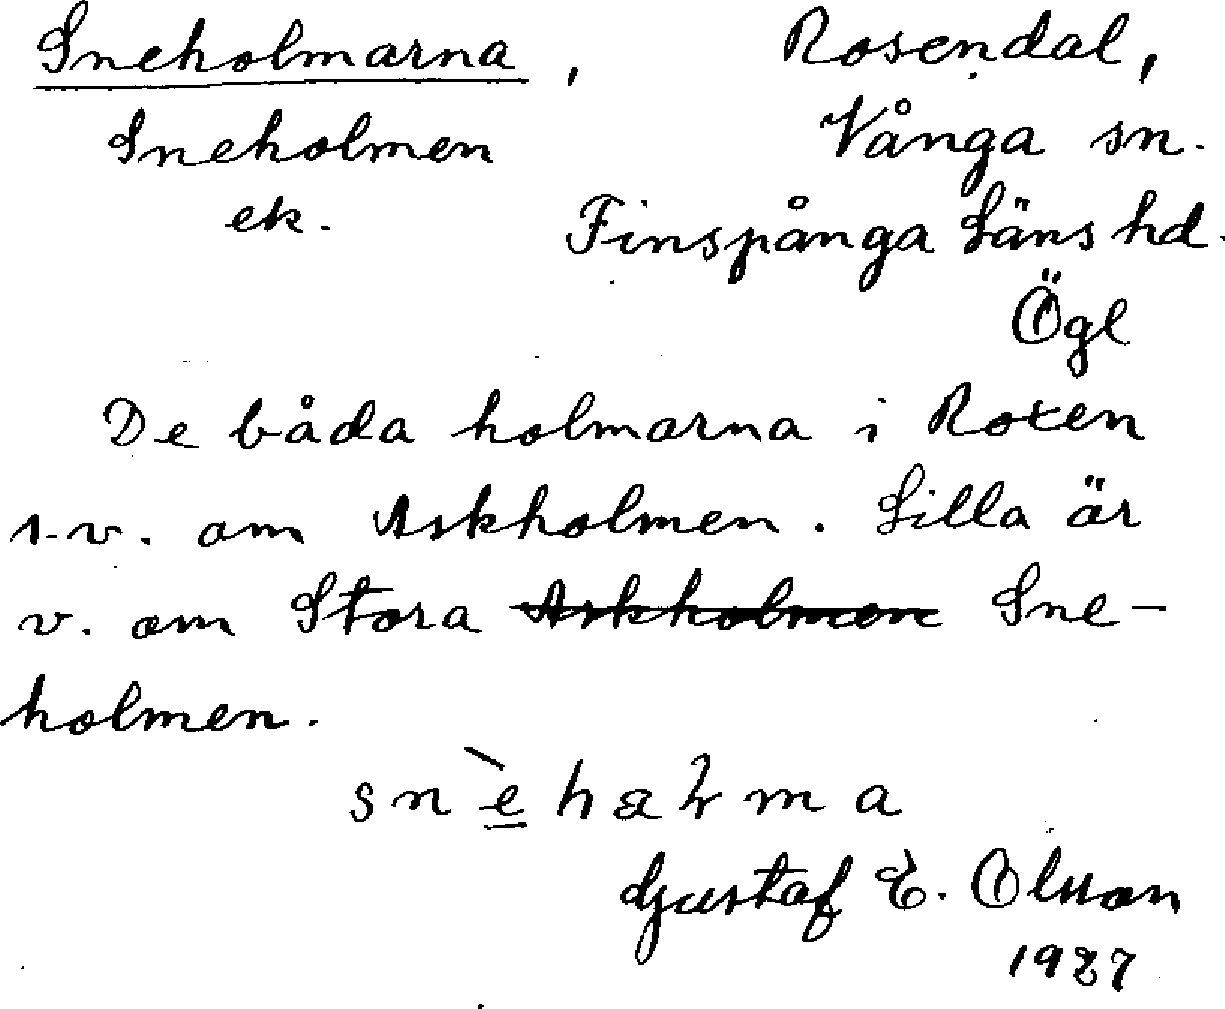 Sneholmarna, Rosendal,
Sneholmen Vånga sn.
ek. Finspånga Läns hd.
Ögl
De båda holmarna i Roxen
s.v. om Askholmen. Lilla är
v. om Stora Askholmen Sne-
holmen.
Gustaf E. Olsson
1927